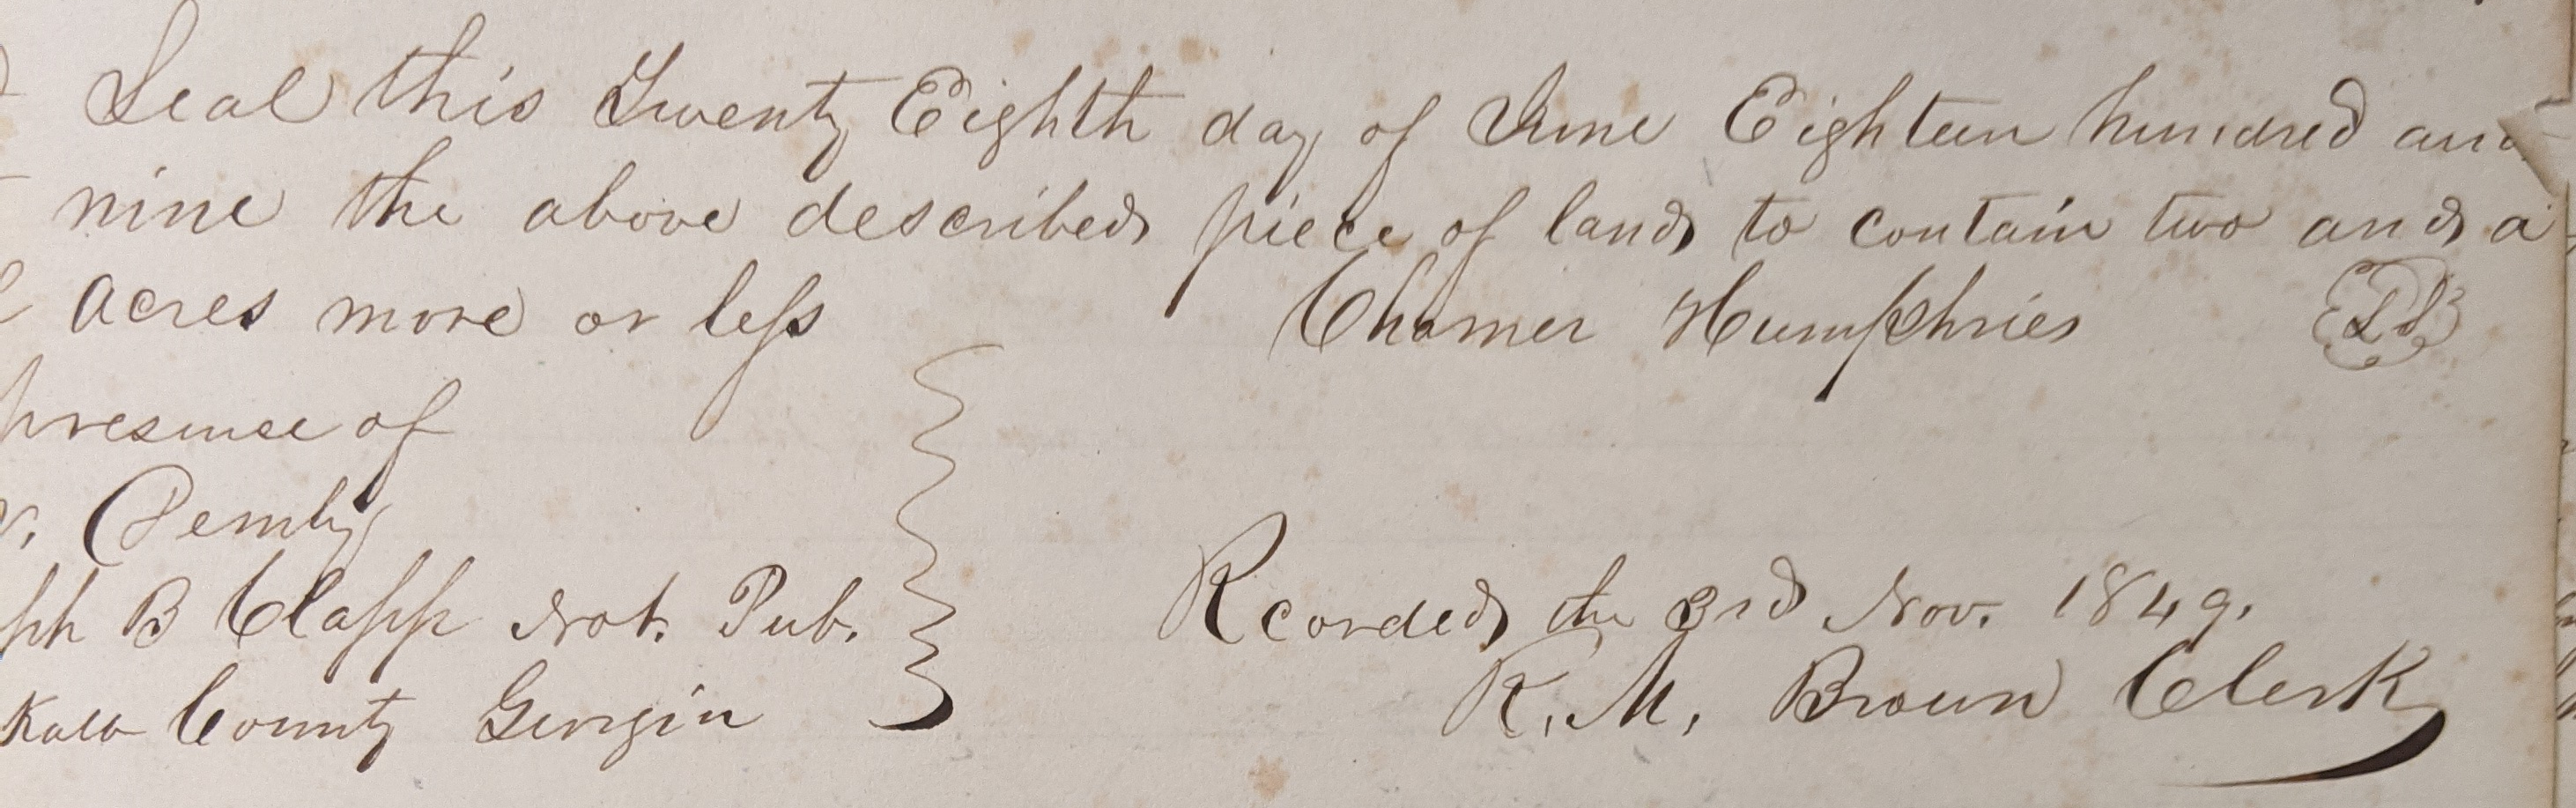 Seal this Twenty Eighth day of June Eighteen hundred and
nine the above described piece of land to contain two and a
acres more or less
Charner Humphries LS
presence of
Pemby
ph B Clapp Not. Pub.
Kalb County Georgia
Recorded the 3rd Nov. 1849.
R. M. Brown Clerk